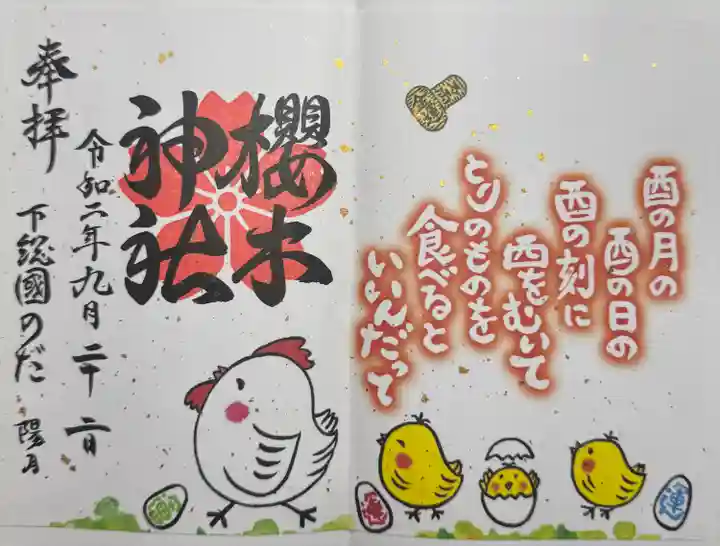 酉の月の
酉の日の
酉の刻に
西をむいて
とりのものを
食べると
いいんだって
櫻木
神社
奉拝
令和二年九月二十二日
下総國のだ 陽月